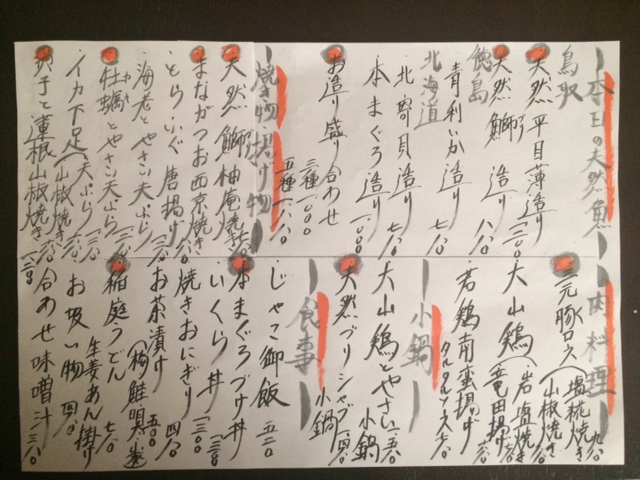 本日の天然魚
鳥取
天然平目薄造り
徳島
天然鰤 造り 八八〇
青利いか造り 七八〇
北海道
・北寄貝造り 七八〇
・本まぐろ造り 一八〇〇
お造り盛り合わせ
三種一八〇〇
五種
焼き物揚げ物
天然鰤柚庵焼き
・まながつお西京焼き
・とらふぐ唐揚げ
・海老とやさい天ぷら
・牡蠣とやさい天ぷら
・イカ下足(山椒焼き 天ぷら
と蓮根山椒焼き
肉料理
三元豚ロース(塩糀焼き 山椒焼き
大山鶏(岩塩焼き 竜田揚げ
・若鶏南蛮揚げ
タルタルソース 七八〇
小鍋
大山鶏とやさい小鍋
天然ブリシャブ小鍋
食事
・じゃこ御飯 五二〇
・本まぐろづけ丼
・いくら丼
・焼きおにぎり 四八〇
・お茶漬け(梅 鮭 明太
稲庭うどん 七八〇
生姜あん掛け
・お吸い物 四八〇
合わせ味噌汁 三八〇